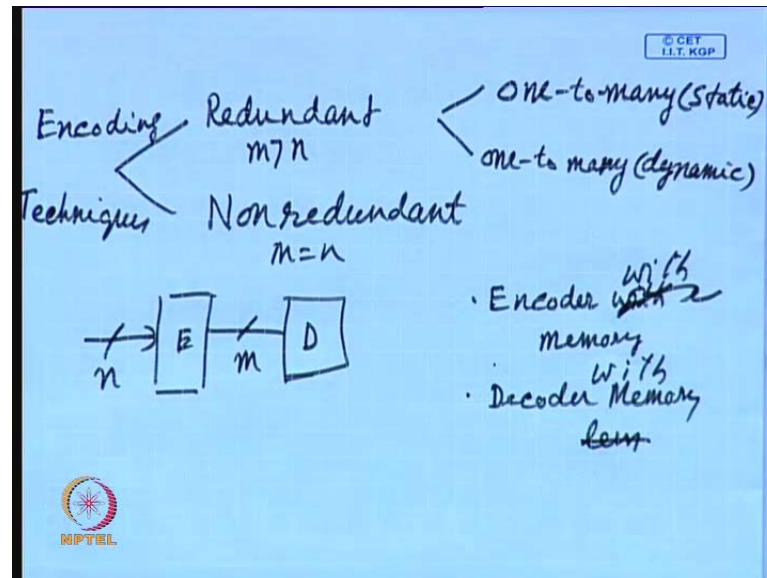 © CET
I.I.T. KGP
Encoding
Techniques
Redundant
m>n
Nonredundant
m=n
one-to-many (Static)
one-to many (dynamic)
n
E
m
D
· Encoder with
memory
with
· Decoder Memory
NPTEL